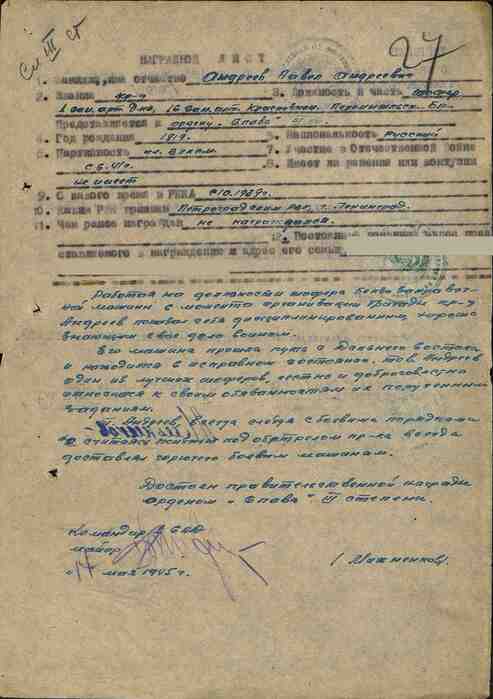 Сл III ст
27
НАГРАДНОЙ ЛИСТ
1. Фамилия, имя отчество Андреев Павел Андреевич
2. Звание кр-ц 3. Должность и часть шофер
1 сам. арт. д-на, 16 сам. арт. Краснозн. Перемышльск. Бр.
Представляется к ордену "Слава" III
4. Год рождения 1919 5. Национальность русский
6. Партийность чл. ВЛКСМ 7. Участие в Отечественной Войне
8. Имеет ли ранения или контузии
не имеет
9. С какого время в РККА с 10.1939г.
10. Каким РВК призван Петроградским РВК, г. Ленинград.
11. Чем ранее награжден не награждался.
12. Постоянный
ставляемого к награждению и адрес его семьи
Работая на должности шофера
машины с момента организации бригады кр-ц
Андреев показал себя дисциплинированным, хорошо
знающим свое дело воином.
Его машина прошла путь с Дальнего востока
и находится в исправном состоянии. тов. Андреев
один из лучших шоферов, честно и добросовестно
относится к своим обязанностям и к полученным
заданиям.
Т. Андреев, всегда следуя с боевыми порядками
не считаясь под обстрелом пр-ка всегда
доставлял горючее боевым машинам.
Достоин правительственной награды
орденом "Слава" III степени.
Командир 1 САД
майор
/ Мажненков/
"14" мая 1945г.